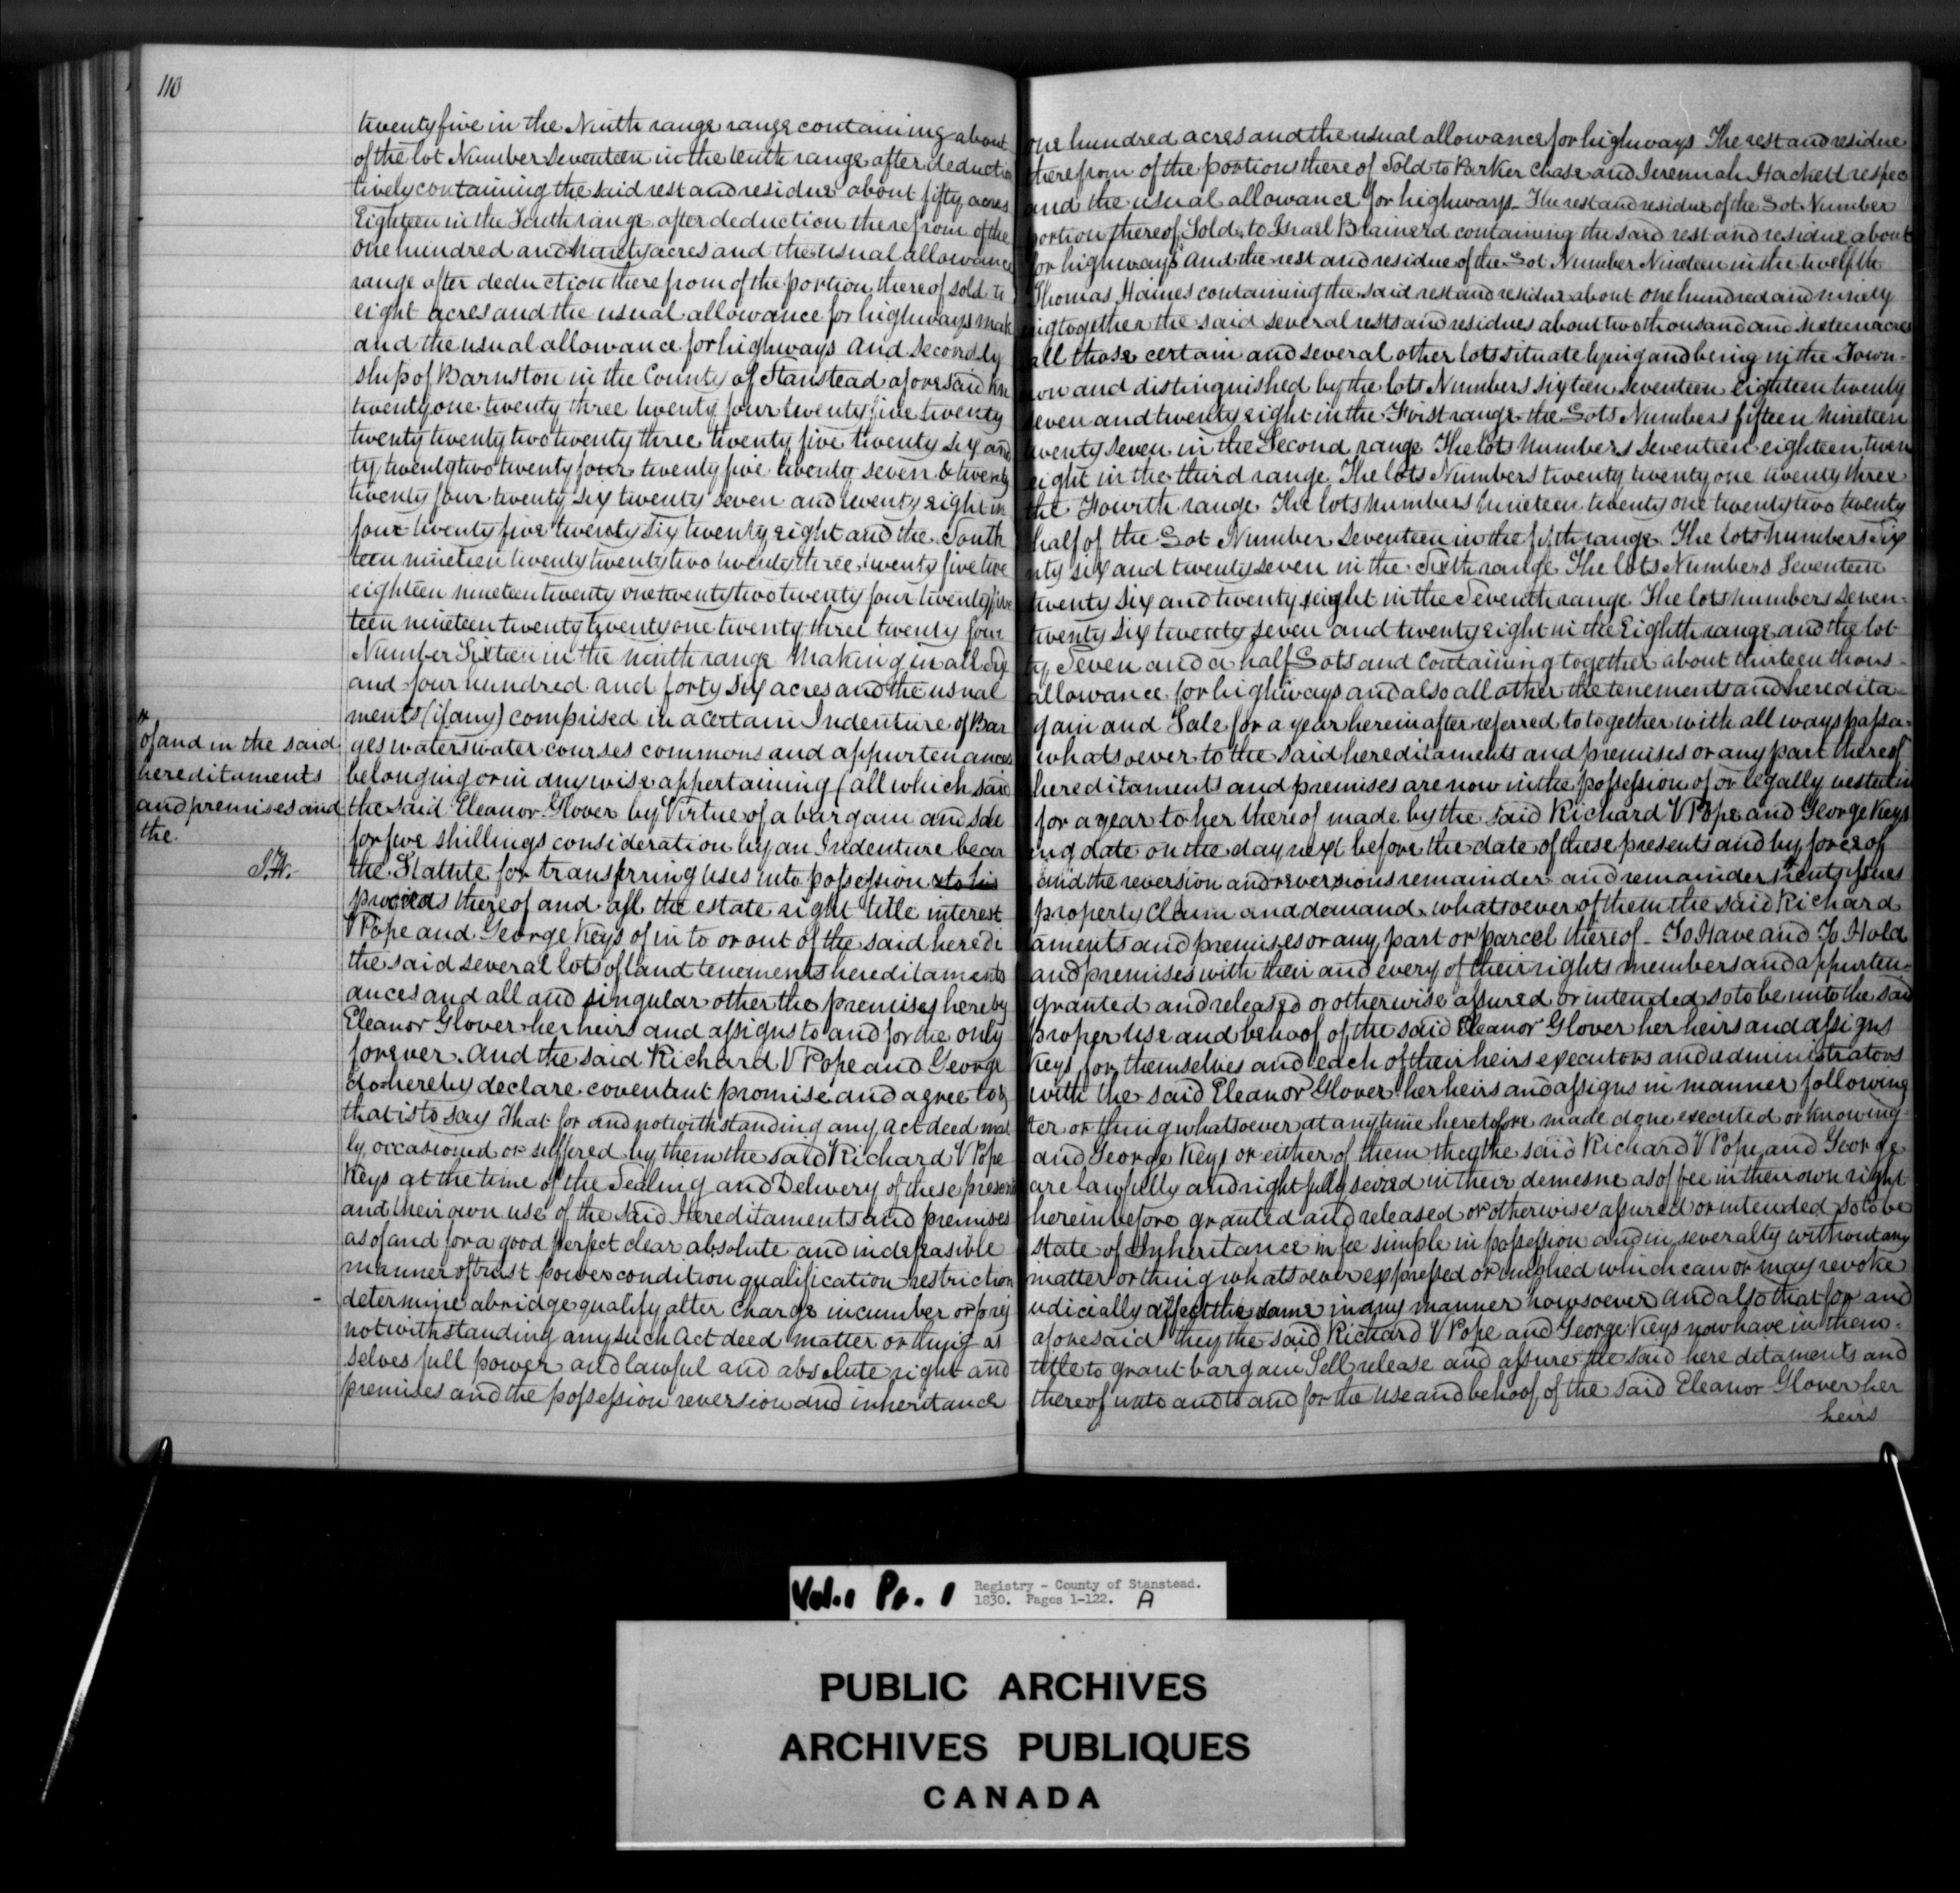 110
twentyfive in the Ninth range range containing about one hundred acres and the usual allowance for highways The rest and residue
of the lot Number Seventeen in the tenth range after deduction therefrom of the portions thereof Sold to Parker Chase and Jeremiah Hackett respec
tively containing the said rest and residue about fifty acres and the usual allowance for highways. The rest and residue of the Lot Number
Eighteen in the Tenth range after deduction therefrom of the portion thereof Sold to Israel Brainerd containing the said rest and residue about
one hundred and ninety acres and the usual allowance for highways and the rest and residue of the Lot Number Nineteen in the twelfth
range after deduction therefrom of the portion thereof sold to Thomas Haines containing the said rest and residue about one hundred and ninety
eight acres and the usual allowance for highways mak ing together the said several rests and residues about two thousand and sixteen acres
and the usual allowance for highways and Secondly all those certain and several other lots situate lying and being in the Town-
ship of Barnston in the County of Stanstead aforesaid kno wn and distinguished by the lots Numbers sixteen seventeen eighteen twenty
twenty one twenty three twenty four twenty five twenty seven and twenty eight in the First range the Lots Numbers fifteen nineteen
twenty twenty two twenty three twenty five twenty six and twenty seven in the Second range The lots numbers seventeen eighteen twen
ty twenty two twenty four twenty five twenty seven & twenty eight in the third range. The lots Numbers twenty twenty one twenty three
twenty four twenty six twenty seven and twenty eight in the Fourth range. The lots numbers nineteen twenty one twenty two twenty
four twenty five twenty six twenty eight and the South half of the Lot Number Seventeen in the fifth range. The lots numbers Six
teen nineteen twenty twenty two twenty three twenty five twe nty six and twenty seven in the Sixth range The lots Numbers Seventeen
eighteen nineteen twenty one twenty two twenty four twenty five twenty six and twenty eight in the Seventh range. The lots numbers Seven-
teen nineteen twenty twenty one twenty three twenty four twenty six twenty seven and twenty eight in the Eighth range and the lot
Number Sixteen in the ninth range making in all Six ty Seven and a half Lots and Containing together about thirteen thous-
and four hundred and forty six acres and the usual allowance for highways and also all other the tenements and heredita-
ments (if any) comprised in a certain Indenture of Bar gain and Sale for a year hereinafter referred to together with all ways passa-
ges waters water courses commons and appurtenances whatsoever to the said hereditaments and premises or any part thereof
belonging or in anywise appertaining (all which said hereditaments and premises are now in the possession of or legally vested in
the said Eleanor Glover by Virtue of a bargain and sale for a year to her thereof made by the said Richard V Pope and George Keys
for five shillings consideration by an Indenture bear ing date on the day next before the date of these presents and by force of
the Statute for transferring uses into possession and the reversion and reversions remainder and remainders rents issues
of and in the said
hereditaments
and premises and
the.
proceeds thereof and all the estate right title interest property claim and demand whatsoever of them the said Richard
V Pope and George Keys of in to or out of the said heredi aments and premises or any part or parcel thereof - To Have and To Hold
the said several lots of land tenements hereditaments and premises with their and every of their rights members and appurten-
ances and all and singular other the premises hereby granted and released or otherwise assured or intended so to be unto the said
Eleanor Glover her heirs and assigns to and for the only proper use and behoof of the said Eleanor Glover her heirs and assigns
forever. And the said Richard V Pope and George Keys for themselves and each of their heirs executors and administrators
do hereby declare covenant promise and agree to & with the said Eleanor Glover her heirs and assigns in manner following
that is to say That for and notwithstanding any act deed mat ter or thing whatsoever at anytime heretofore made done executed or knowing-
ly occasioned or suffered by them the said Richard V Pope and George Keys or either of them they the said Richard V Pope and George
Keys at the time of the Sealing and Delivery of these presents are lawfully and rightfully seized in their demesne as of fee in their own right
and their own use of the said Hereditaments and premises hereinbefore granted and released or otherwise assured or intended so to be
as of and for a good perfect clear absolute and indefeasible state of Inheritance in fee simple in possession and in severalty without any
manner of trust power condition qualification restriction matter or thing whatsoever expressed or implied which can or may revoke
determine abridge qualify alter charge incumber or prej udicially affect the same in any manner howsoever and also that for and
notwithstanding any such act deed matter or thing as aforesaid they the said Richard V Pope and George Keys now have in them-
selves full power and lawful and absolute right and title to grant bargain Sell release and assure the said hereditaments and
premises and the possession reversion and inheritance thereof unto and to and for the use and behoof of the said Eleanor Glover her
heirs
Vol. 1 Pr. 1 Registry - County of Stanstead.
1830. Pages 1-122. A
PUBLIC ARCHIVES
ARCHIVES PUBLIQUES
CANADA